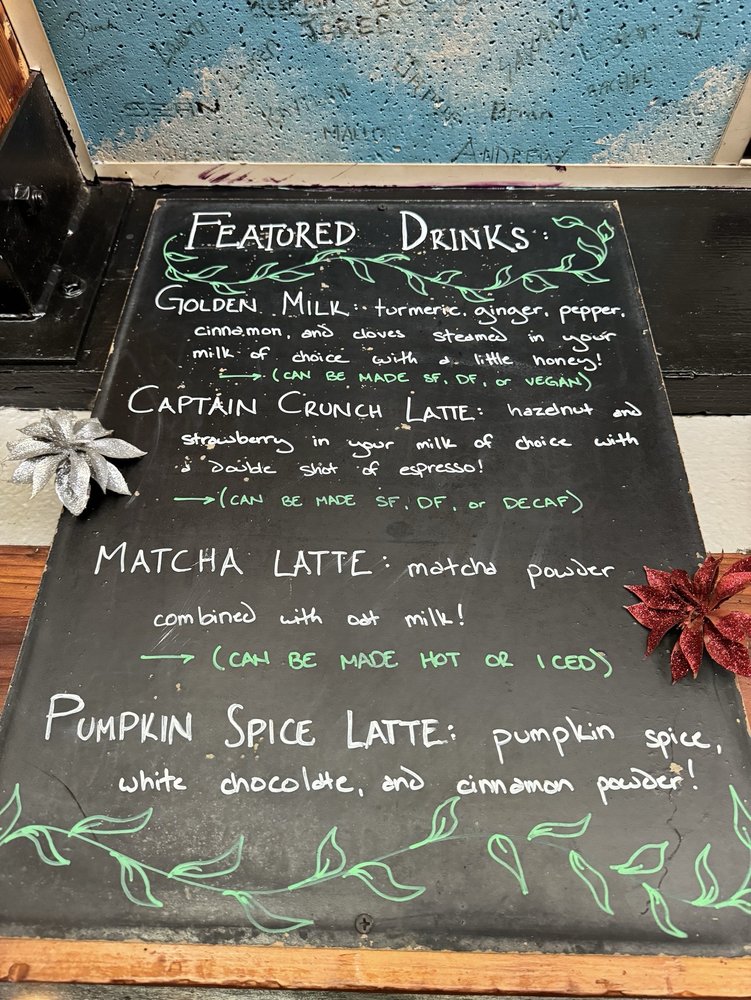 SEAN
MALLO
Brian
ANDREW
FEATURED DRINKS:
GOLDEN MILK: turmeric, ginger, pepper,
cinnamon, and cloves steamed in your
milk of choice with a little honey!
→ (CAN BE MADE SF, DF, or VEGAN)
CAPTAIN CRUNCH LATTE: hazelnut and
strawberry in your milk of choice with
a double shot of espresso!
→ (CAN BE MADE SF, DF, or DECAF)
MATCHA LATTE: matcha powder
combined with oat milk!
→ (CAN BE MADE HOT OR ICED)
PUMPKIN SPICE LATTE: pumpkin spice,
white chocolate, and cinnamon powder!